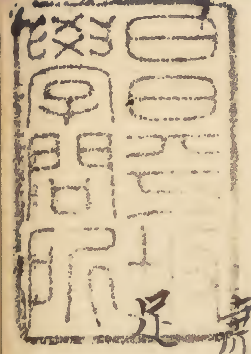 昌平坂
學問所
足